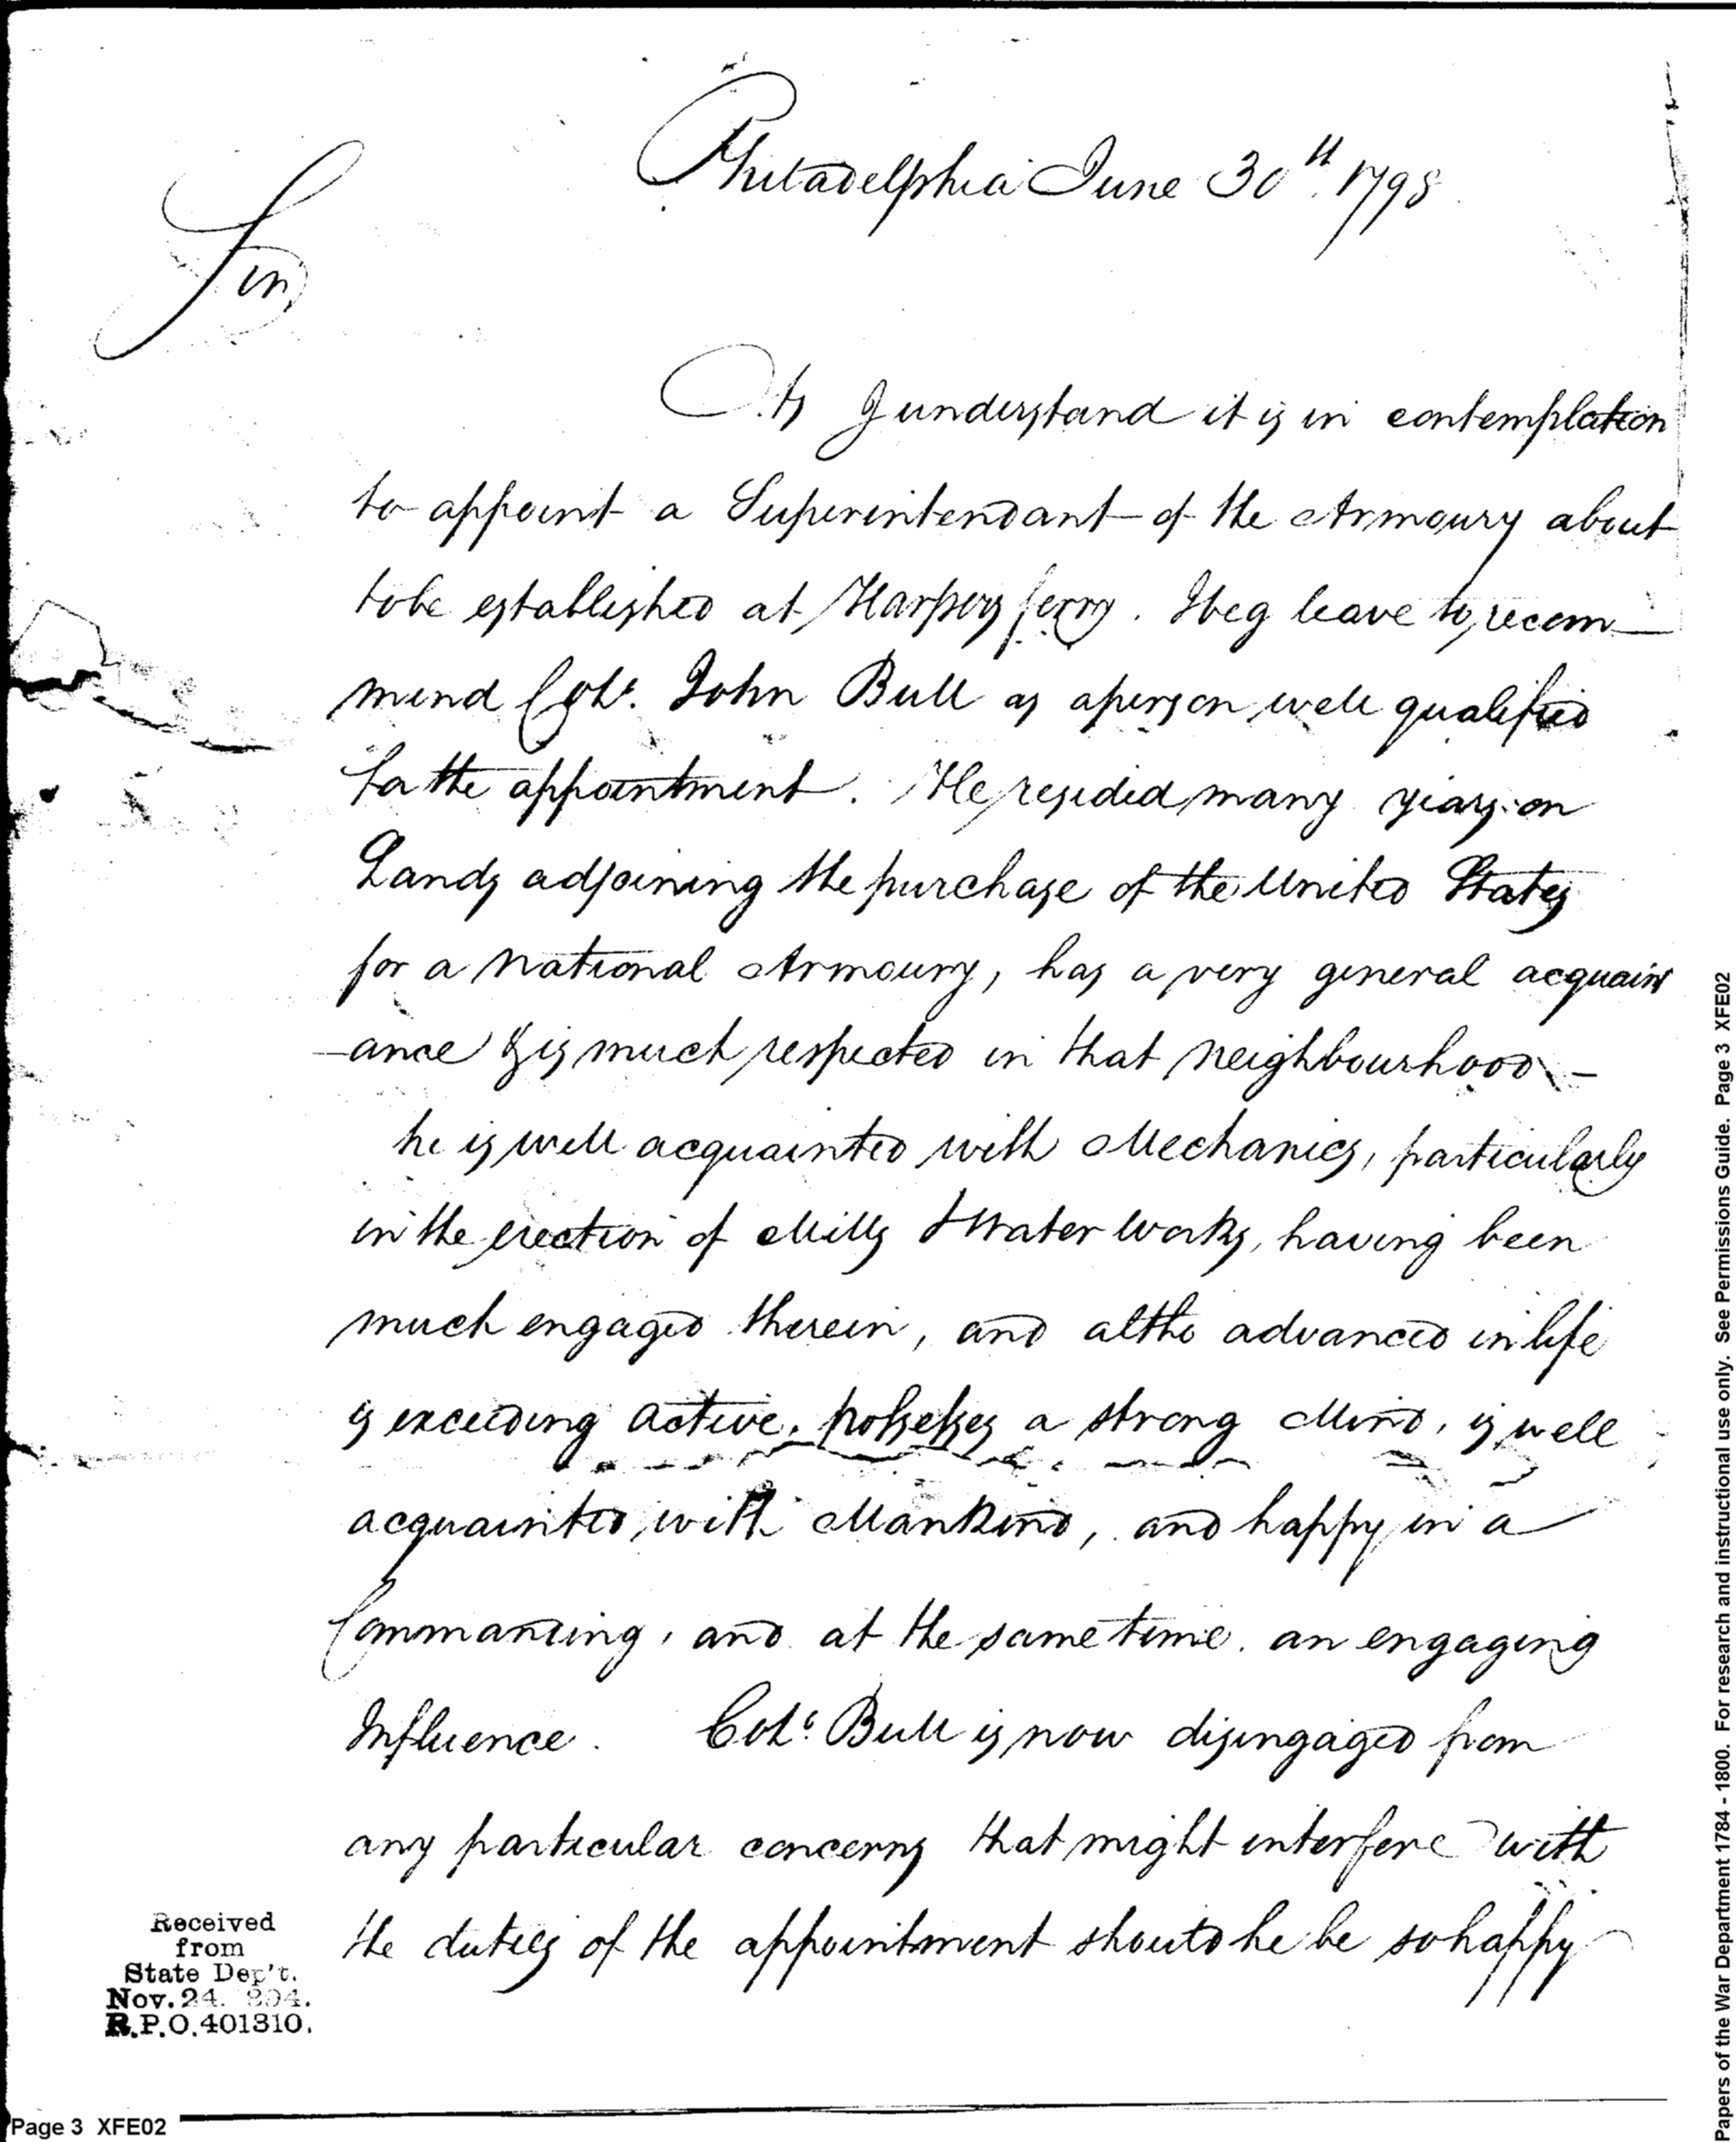 Philadelphia June 30th. 1798
Sir
As I understand it is in contemplation
to appoint a Superintendant of the Armoury about
to be established at Harpers ferry. I beg leave to recom
mend Colo. John Bull as a person well qualified
for the appointment. He resided many years on
Lands adjoining the purchase of the United States
for a National Armoury, has a very general acquaint
-ance & is much respected in that Neighbourhood -
he is well acquainted with Mechanics, particularly
in the erection of Mills & Water Works, having been
much engaged therein, and altho advanced in life
is exceeding active, possesses a strong Mind, is well
acquainted with Mankind, and happy in a
Commanding, and at the same time, an engaging
Influence. Colo. Bull is now disengaged from
any particular concerns that might interfere with
the duties of the appointment should he be so happy
Received
from
State Dep't.
Nov. 24. 894.
R.P.O. 401310.
Page 3 XFE02
Papers of the War Department 1784 - 1800. For research and instructional use only. See Permissions Guide. Page 3 XFE02